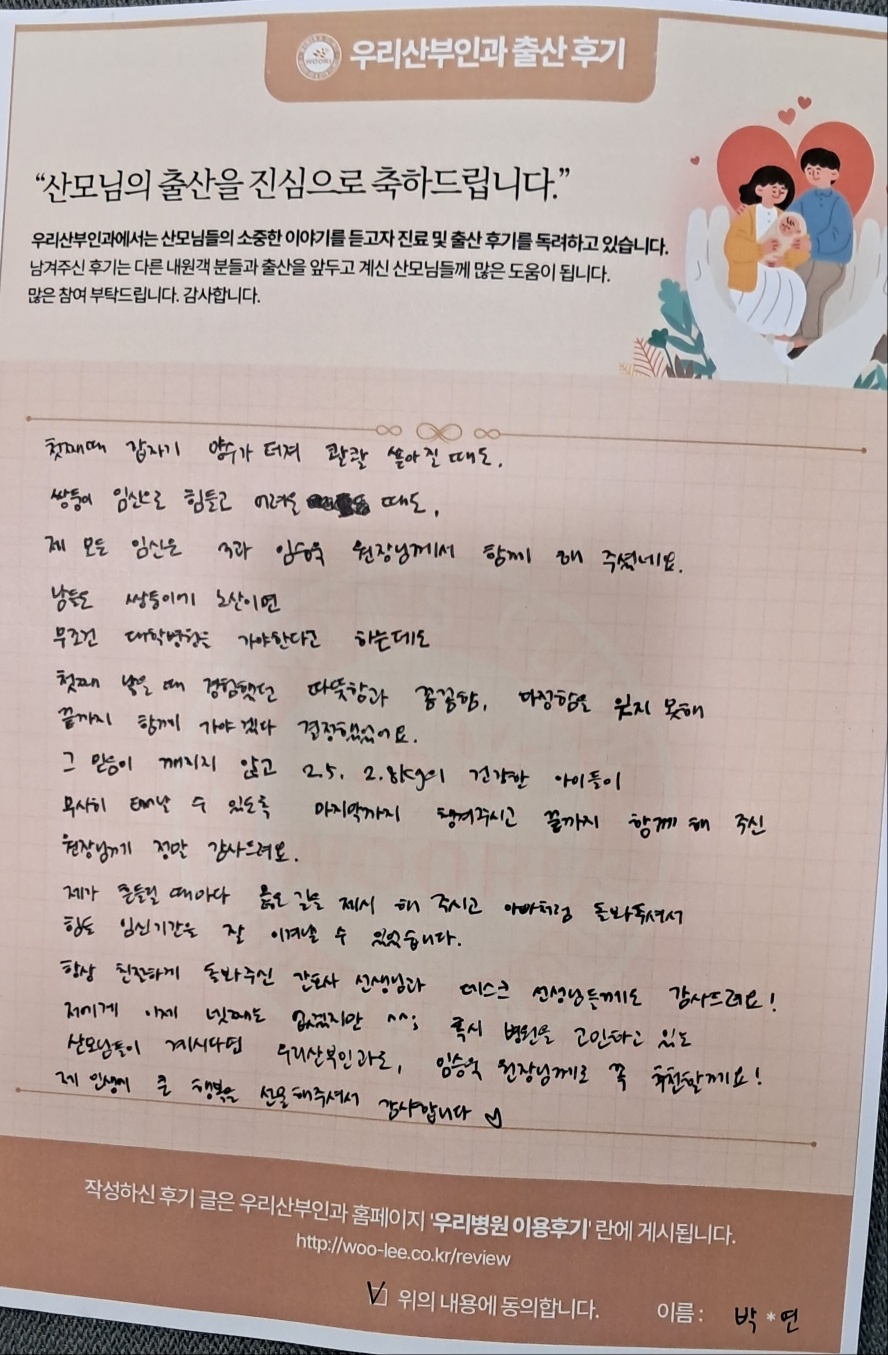 우리산부인과 출산 후기
“산모님의 출산을 진심으로 축하드립니다.”
우리산부인과에서는 산모님들의 소중한 이야기를 듣고자 진료 및 출산 후기를 독려하고 있습니다.
남겨주신 후기는 다른 내원객 분들과 출산을 앞두고 계신 산모님들께 많은 도움이 됩니다.
많은 참여 부탁드립니다. 감사합니다.
첫째때 갑자기 양수가 터져 콸콸 쏟아질 때도,
쌍둥이 임신으로 힘들고 어려울 때도,
제 모든 임신은 3과 임승욱 원장님께서 함께 해 주셨네요.
남들은 쌍둥이에 노산이면
무조건 대학병원을 가야한다고 하는데도
첫째 낳을 때 경험했던 따뜻함과 꼼꼼함, 다정함을 잊지 못해
끝까지 함께 가야겠다 결정했었어요.
그 믿음이 깨지지 않고 2.5, 2.8kg의 건강한 아이들이
무사히 태어날 수 있도록 마지막까지 챙겨주시고 끝까지 함께 해 주신
원장님께 정말 감사드려요.
제가 흔들릴 때마다 옳은 길을 제시 해 주시고 아빠처럼 돌봐주셔서
힘든 임신기간을 잘 이겨낼 수 있었습니다.
항상 친절하게 돌봐주신 간호사 선생님과 데스크 선생님들께도 감사드려요!
저에게 이제 넷째는 없겠지만 ^^; 혹시 병원을 고민하고 있는
산모님들이 계시다면 우리산부인과로, 임승욱 원장님께로 꼭 추천할께요!
제 인생에 큰 행복을 선물해주셔서 감사합니다 ♡
작성하신 후기 글은 우리산부인과 홈페이지 '우리병원 이용후기' 란에 게시됩니다.
http://woo-lee.co.kr/review
위의 내용에 동의합니다. 이름 : 박*연